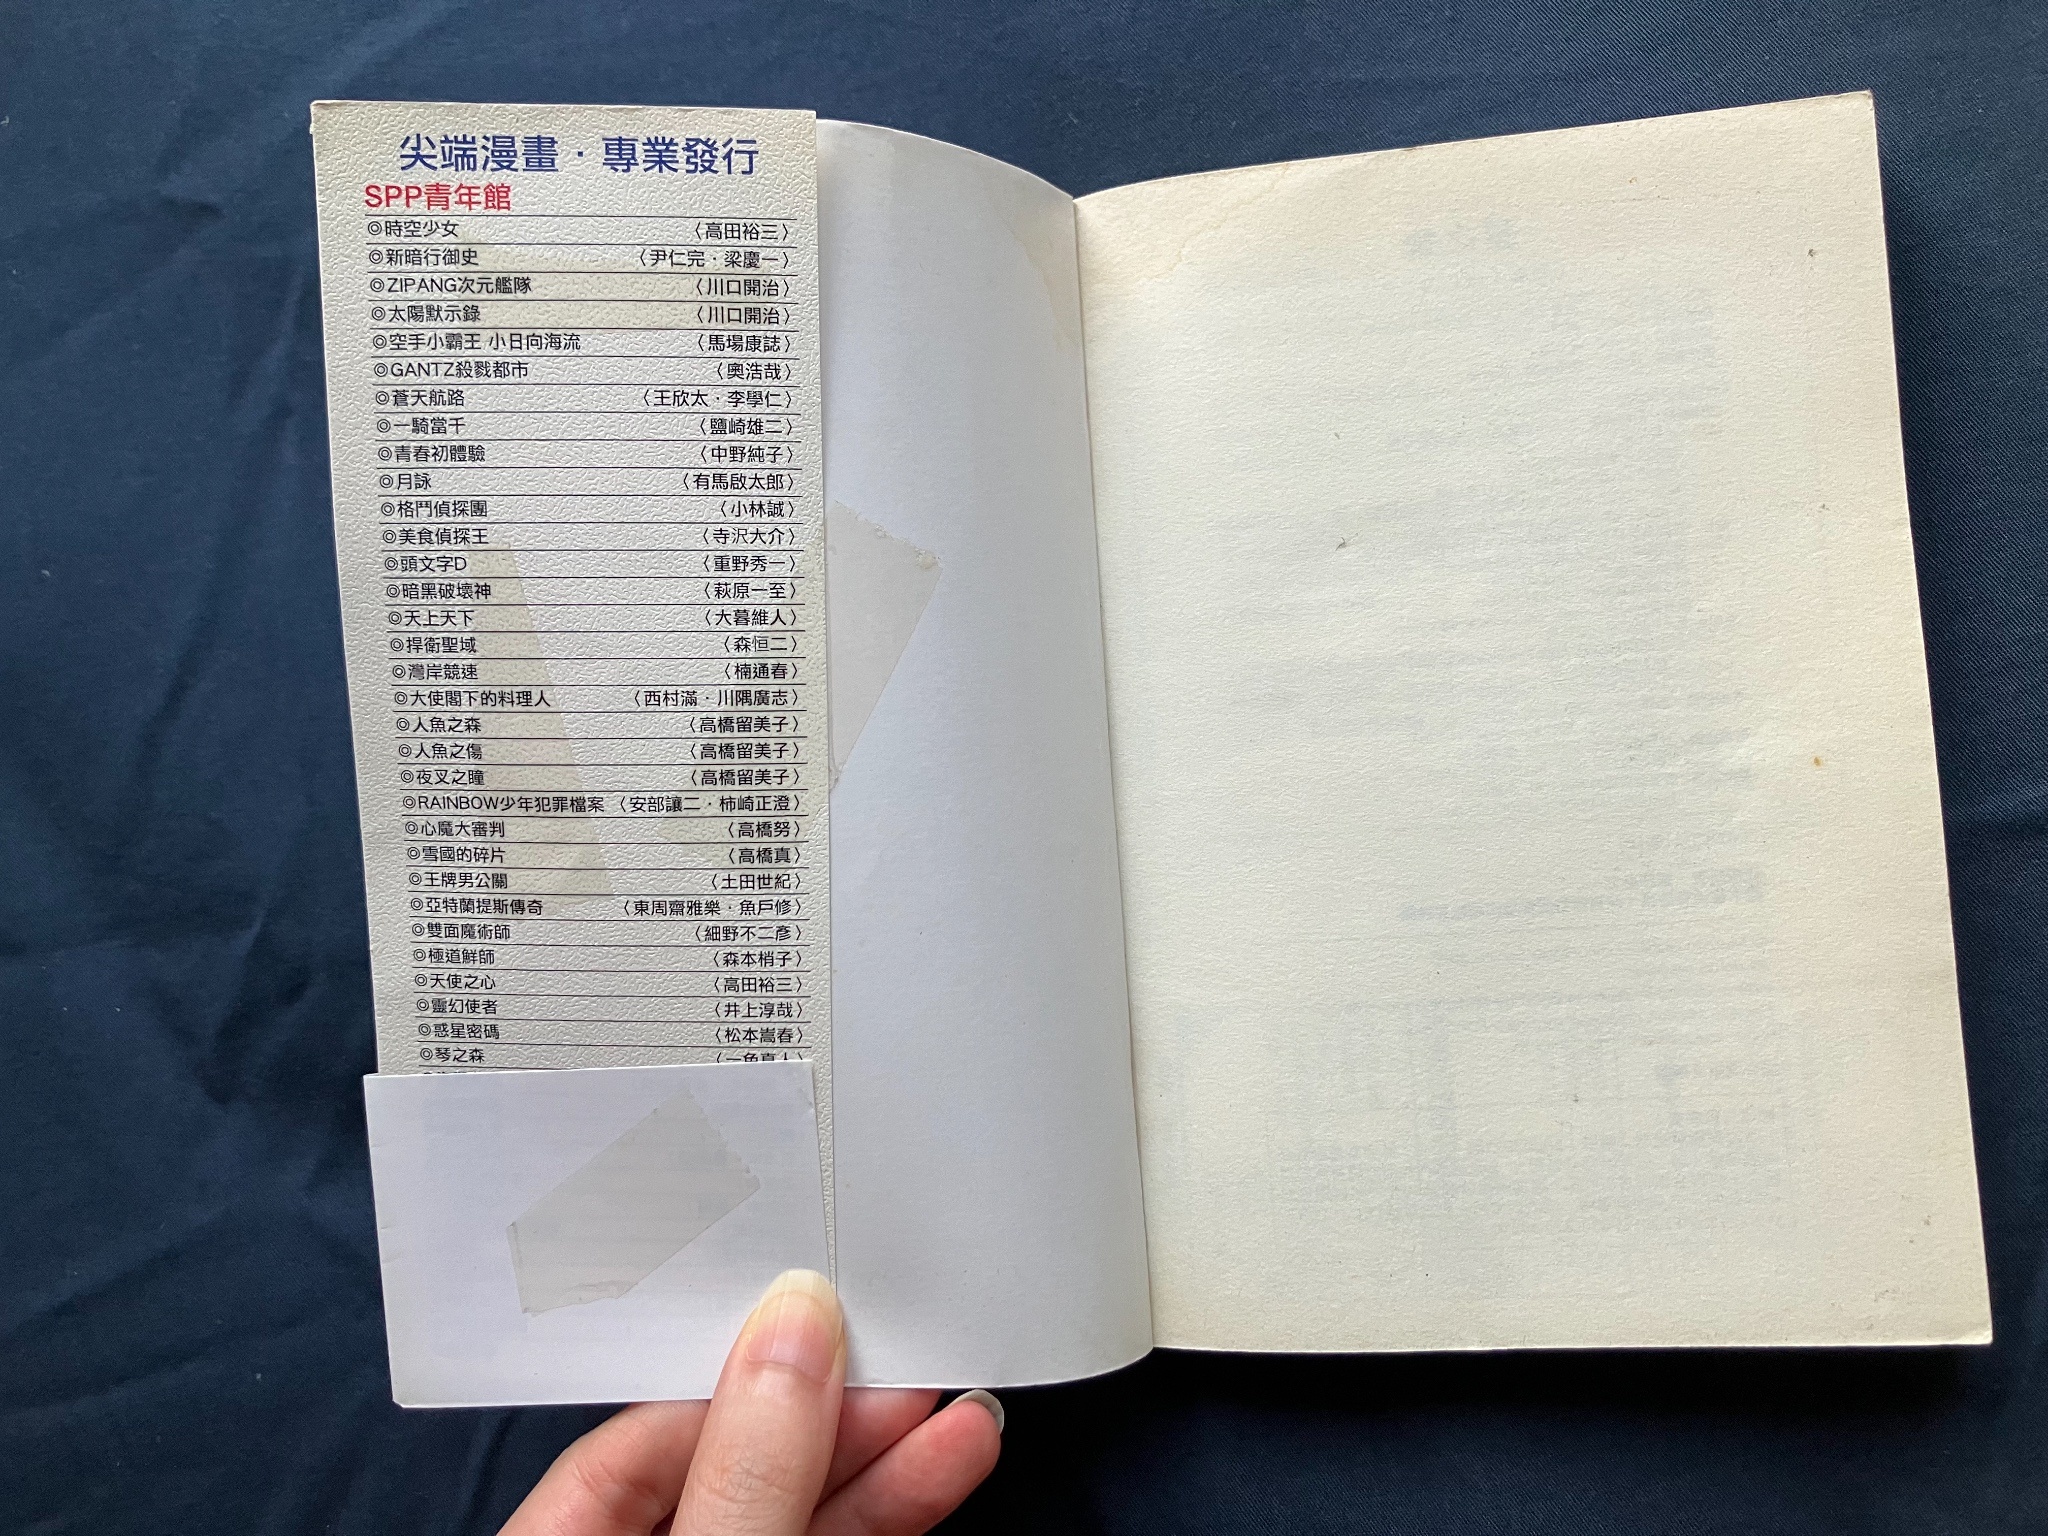 尖端漫畫·專業發行
SPP青年館
◎時空少女 〈高田裕三〉
◎新暗行御史 〈尹仁完·梁慶一〉
◎ZIPANG次元艦隊 〈川口開治〉
◎太陽默示錄 〈川口開治〉
◎空手小霸王 小日向海流 〈馬場康誌〉
◎GANTZ殺戮都市 〈奧浩哉〉
◎蒼天航路 〈王欣太·李學仁〉
◎一騎當千 〈鹽崎雄二〉
◎青春初體驗 〈中野純子〉
◎月詠 〈有馬啟太郎〉
◎格鬥偵探團 〈小林誠〉
◎美食偵探王 〈寺沢大介〉
◎頭文字D 〈重野秀一〉
◎暗黑破壞神 〈萩原一至〉
◎天上天下 〈大暮維人〉
◎捍衛聖域 〈森恒二〉
◎灣岸競速 〈楠通春〉
◎大使閣下的料理人 〈西村滿·川隅廣志〉
◎人魚之森 〈高橋留美子〉
◎人魚之傷 〈高橋留美子〉
◎夜叉之瞳 〈高橋留美子〉
◎RAINBOW少年犯罪檔案 〈安部讓二·柿崎正澄〉
◎心魔大審判 〈高橋努〉
◎雪國的碎片 〈高橋真〉
◎王牌男公關 〈土田世紀〉
◎亞特蘭提斯傳奇 〈東周齋雅樂·魚戶修〉
◎雙面魔術師 〈細野不二彥〉
◎極道鮮師 〈森本梢子〉
◎天使之心 〈高田裕三〉
◎靈幻使者 〈井上淳哉〉
◎惑星密碼 〈松本嵩春〉
◎琴之森 〈一色真人〉